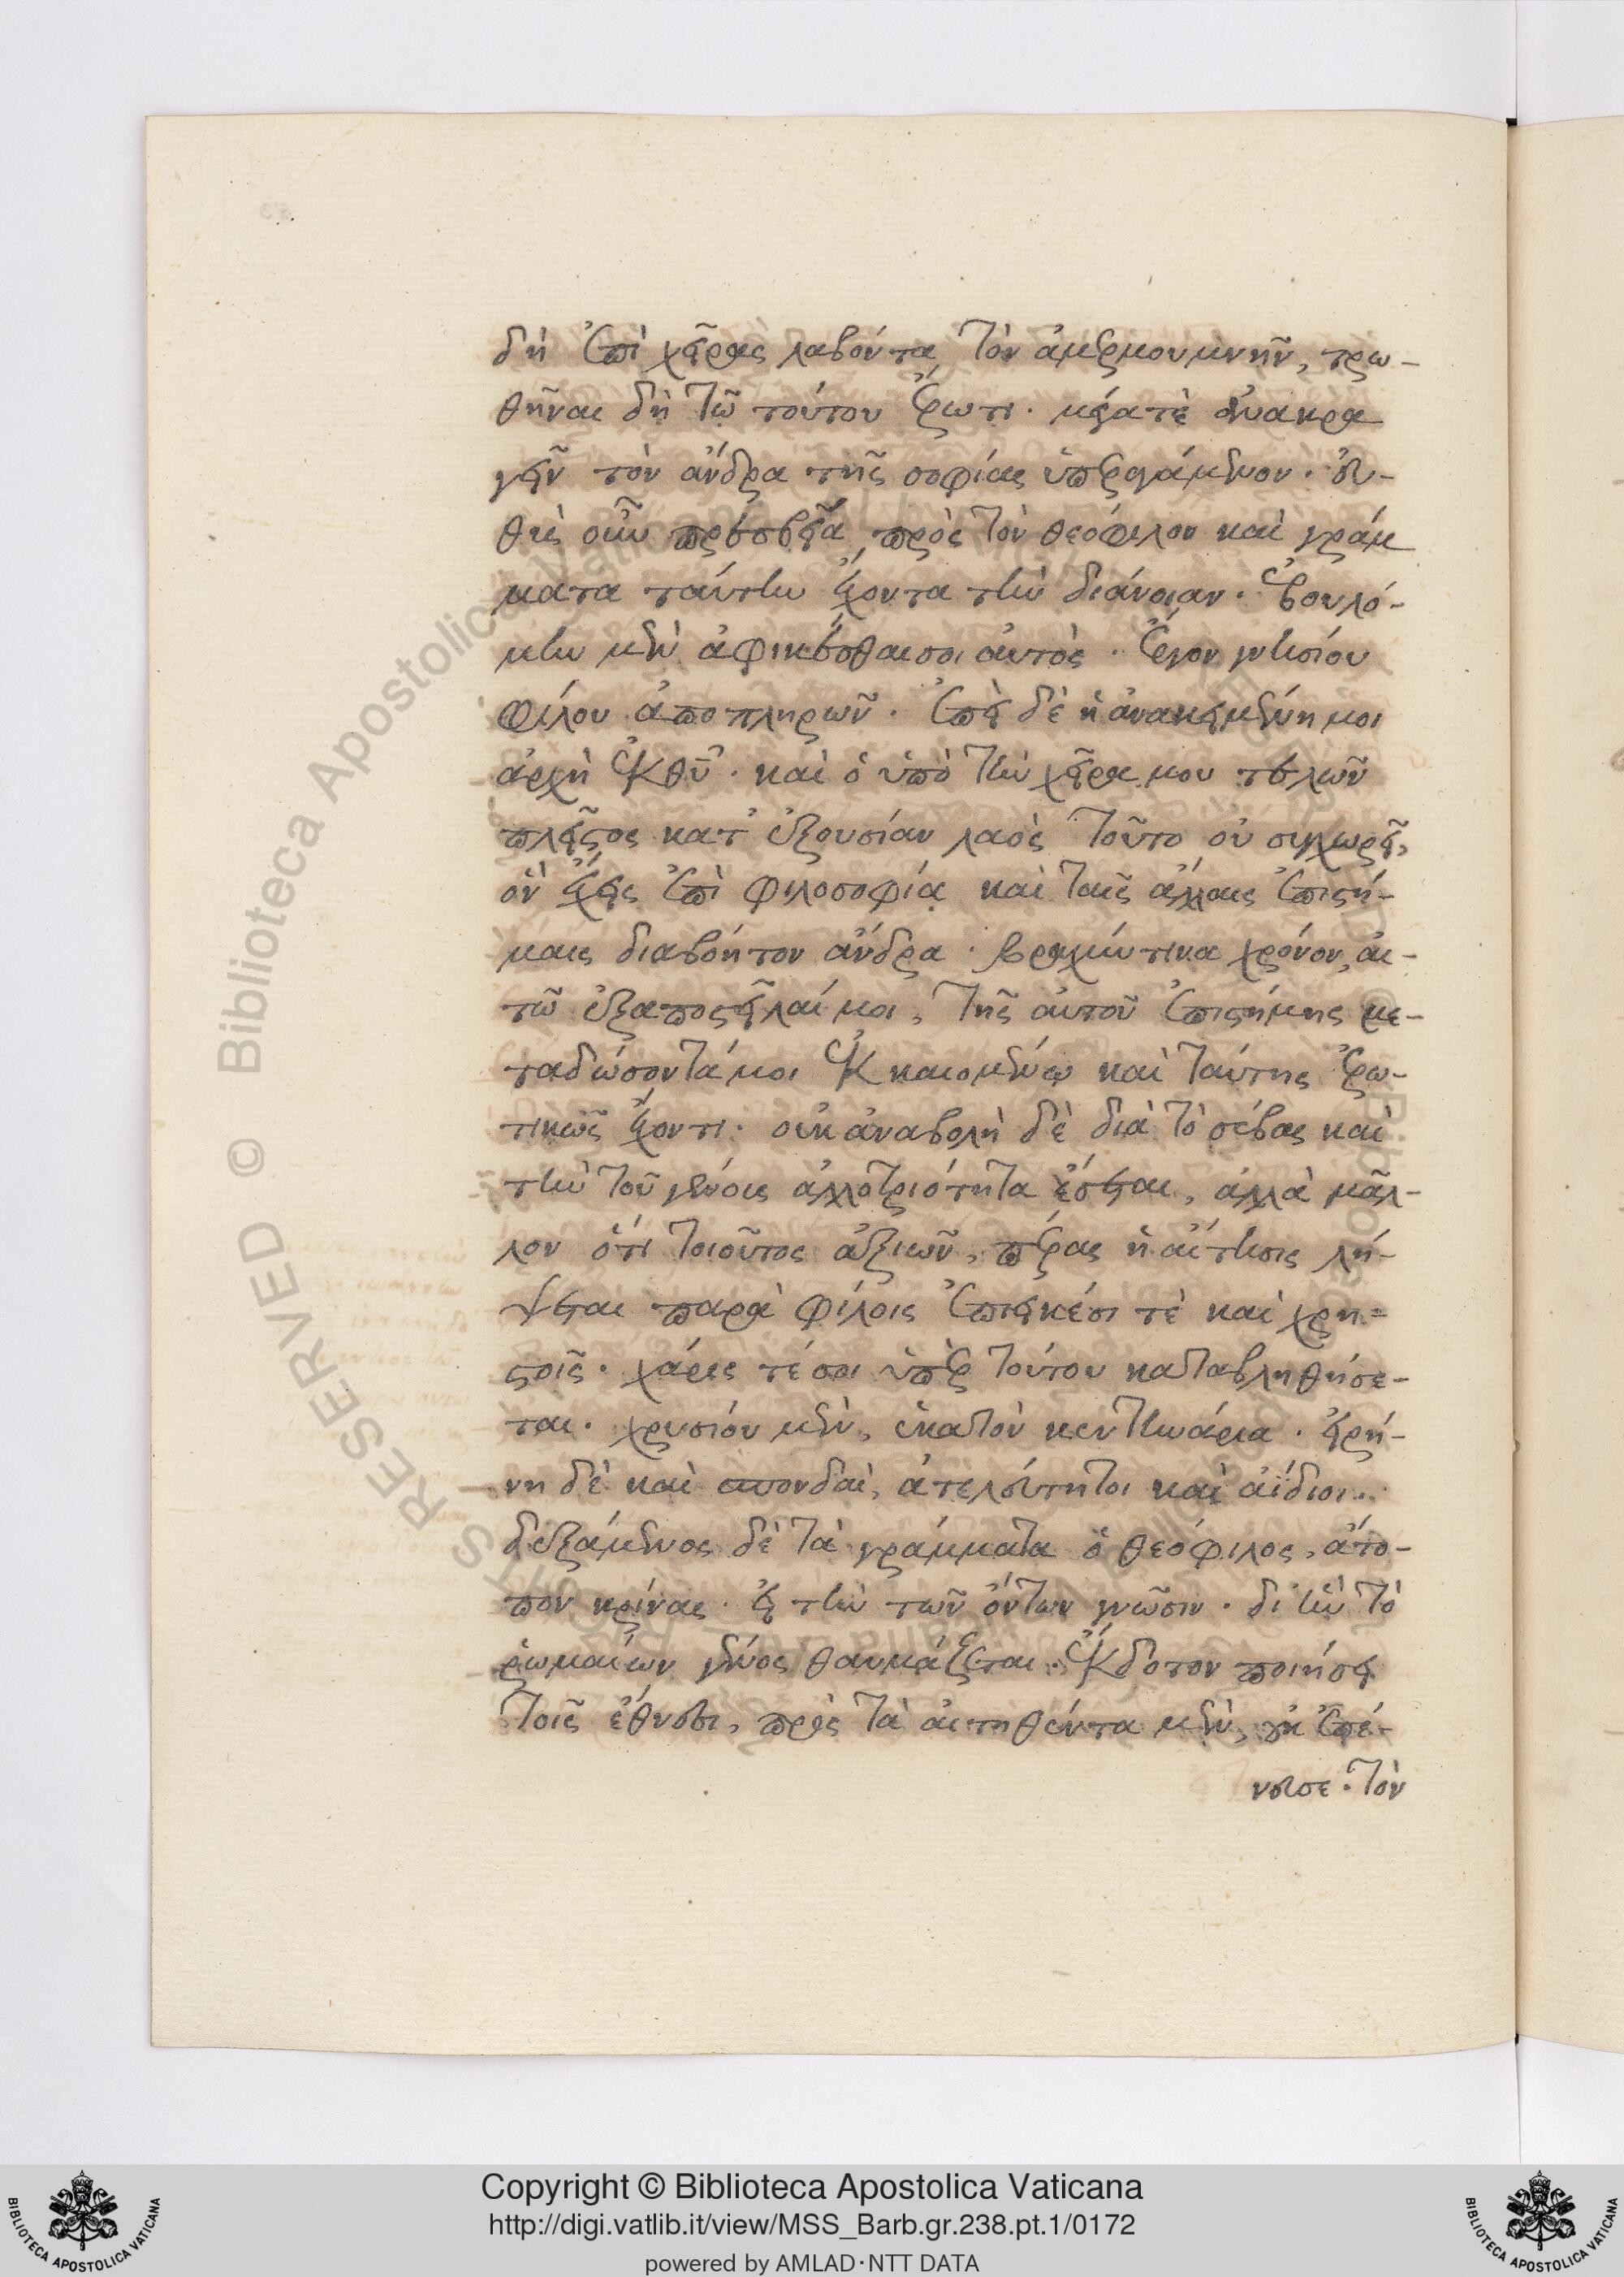 δὴ ἐπὶ χεῖρας λαβόντα τὸν ἀμερμουμνῆν, τρω-
θῆναι δὴ τῷ τούτου ἔρωτι. μέγα τὲ ἀνακρα
γεῖν τὸν ἄνδρα τῆς σοφίας ὑπεραγάμενον. εὐ-
θὺς οὖν πρέσβεια πρὸς τὸν θεόφιλον καὶ γράμ
ματα ταύτην ἔχοντα τὴν διάνοιαν. ἐβουλό-
μην μὲν ἀφικέσθαι σοι αὐτὸς. ἔργον γνησίου
φίλου ἀποπληρῶν. ἐπεὶ δὲ ἡ ἀνακειμένη μοι
ἀρχὴ ἐκ θῦ. καὶ ὁ ὑπὸ τὴν χεῖρα μου τελῶν
πλεῖστος κατ' ἐξουσίαν λαὸς τοῦτο οὐ συγχωρεῖ,
ὃν ἔχεις ἐπὶ φιλοσοφίᾳ καὶ ταῖς ἄλλαις ἐπιστή-
μαις διαβόητον ἄνδρα. βραχύν τινα χρόνον, αἰ-
τῶ ἐξαποστεῖλαί μοι, τῆς αὐτοῦ ἐπιστήμης με-
ταδώσοντά μοι ἐκκαιομένῳ καὶ ταύτης ἐρω-
τικῶς ἔχοντι. οὐκ ἀναβολὴ δὲ διὰ τὸ σέβας καὶ
τὴν τοῦ γένους ἀλλοτριότητα ἔσεται, ἀλλὰ μᾶλ-
λον ὅτι τοιοῦτος ἀξιῶν, πέρας ἡ αἴτησις λή-
ψεται παρὰ φίλοις ἐπιεικέσι τὲ καὶ χρη-
στοῖς. χάρις τέ σοι ὑπὲρ τούτου καταβληθήσε-
ται. χρυσίου μὲν, ἑκατὸν κεντηνάρια. εἰρή-
νη δὲ καὶ σπονδαὶ, ἀτελεύτητοι καὶ ἀΐδιοι.
δεξάμενος δὲ τὰ γράμματα ὁ θεόφιλος, ἄτο-
πον κρίνας. εἰ τὴν τῶν ὄντων γνῶσιν. δι' ἣν τὸ
ῥωμαίων γένος θαυμάζεται. ἔκδοτον ποιήσει
τοῖς ἔθνεσι, πρὸς τὰ αἰτηθέντα μὲν, οὐκ ἐπέ-
νευσε. τὸν
Copyright © Biblioteca Apostolica Vaticana
http://digi.vatlib.it/view/MSS_Barb.gr.238.pt.1/0172
powered by AMLAD·NTT DATA